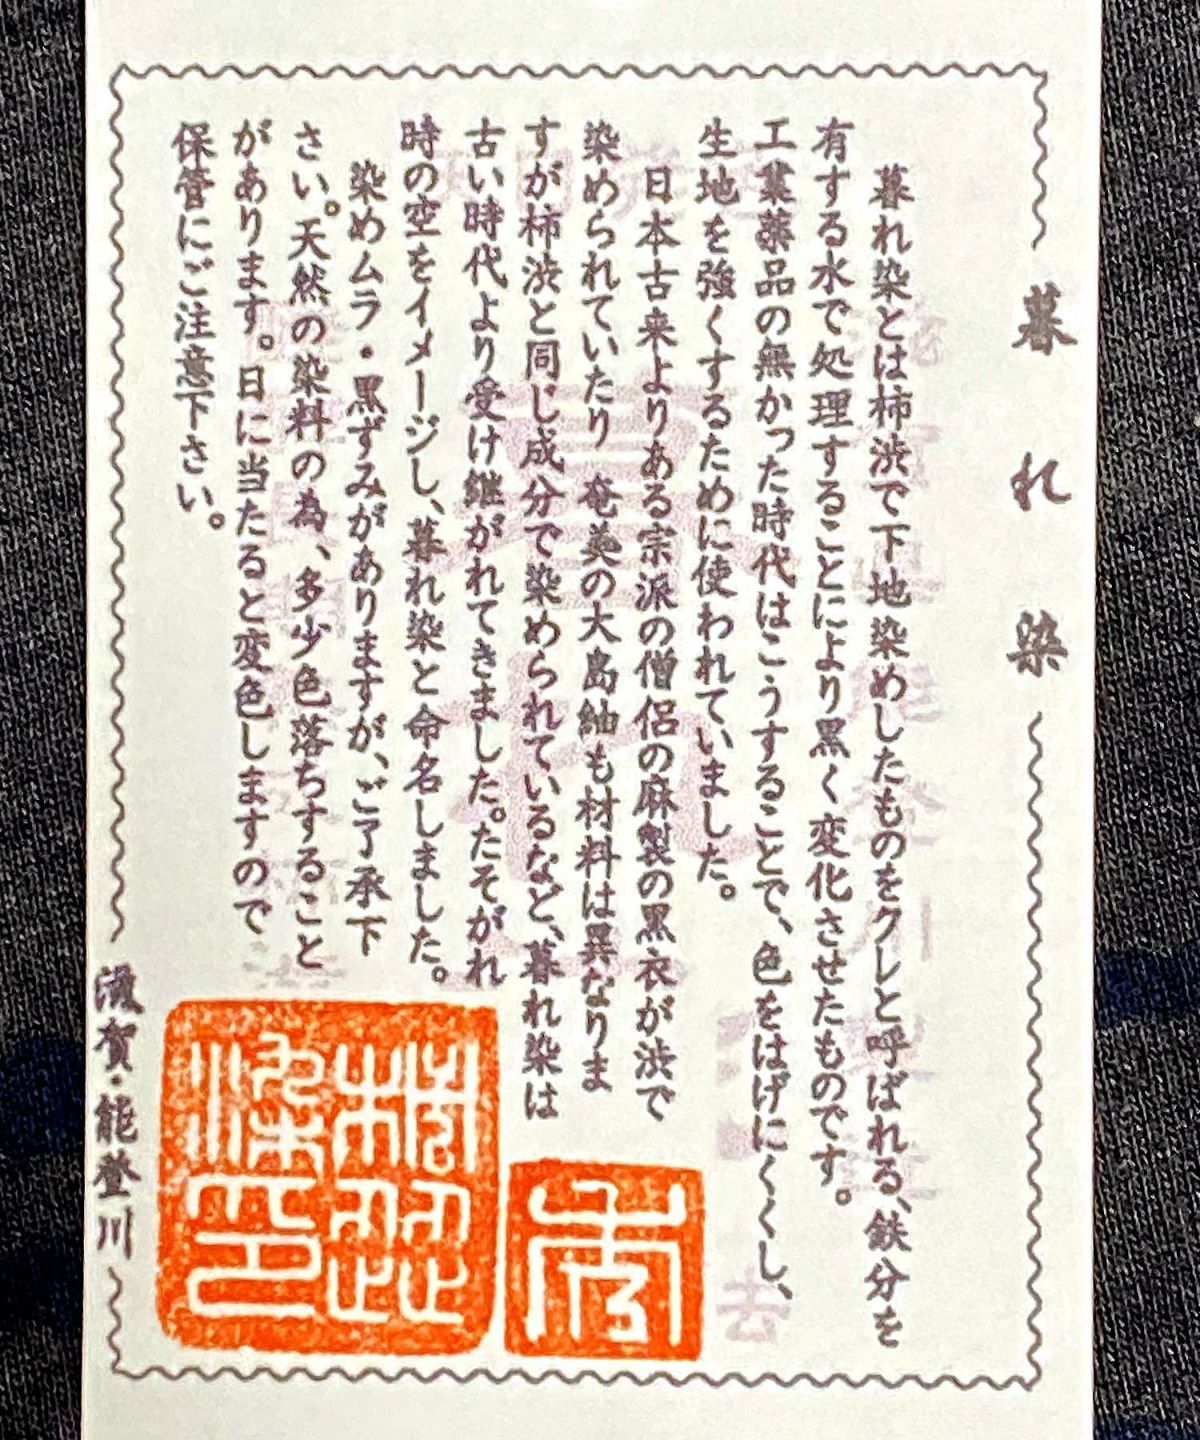 暮れ染
暮れ染とは柿渋で下地染めしたものをクレと呼ばれる、鉄分を
有する水で処理することにより黒く変化させたものです。
工業薬品の無かった時代はこうすることで、色をはげにくくし、
生地を強くするために使われていました。
日本古来よりある宗派の僧侶の麻製の黒衣が渋で
染められていたり 奄美の大島紬も材料は異なりま
すが柿渋と同じ成分で染められているなど、暮れ染は
古い時代より受け継がれてきました。たそがれ
時の空をイメージし、暮れ染と命名しました。
染めムラ・黒ずみがありますが、ご了承下
さい。天然の染料の為、多少色落ちすること
があります。日に当たると変色しますので
保管にご注意下さい。
滋賀・能登川